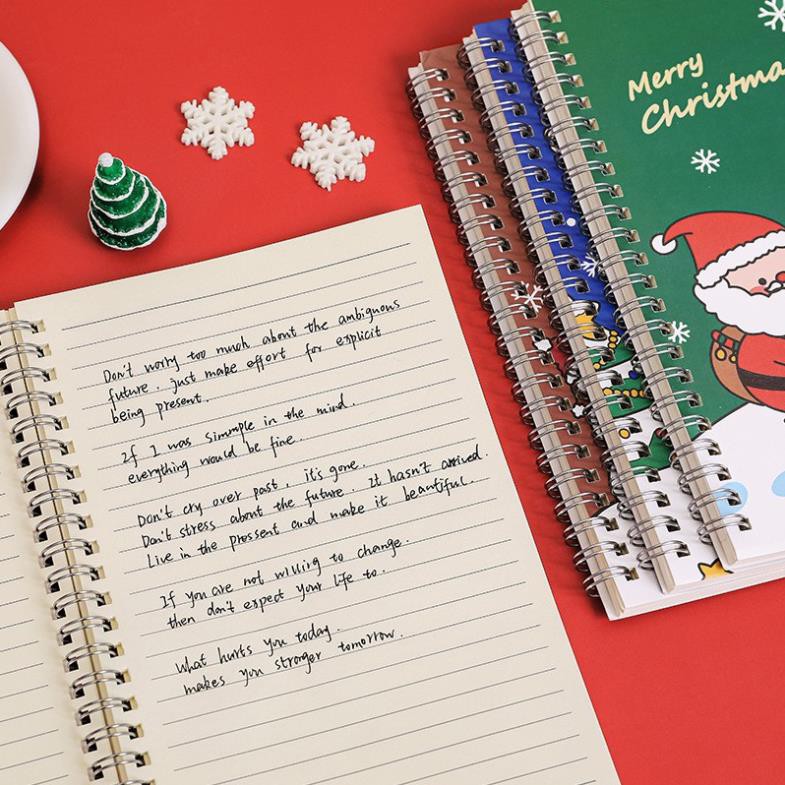 Merry
Christma
Don't worry too much about the ambiguous
future. just make effort for explicit
being present.
If I was simmple in the mind.
everything would be fine.
Don't cry over past, it's gone.
Don't stress about the future. It hasn't arrived.
Live in the pressent and make it beautiful.
If you are not willing to change.
then don't expect your life to.
What hurts you today.
makes you stronger tomorrow.